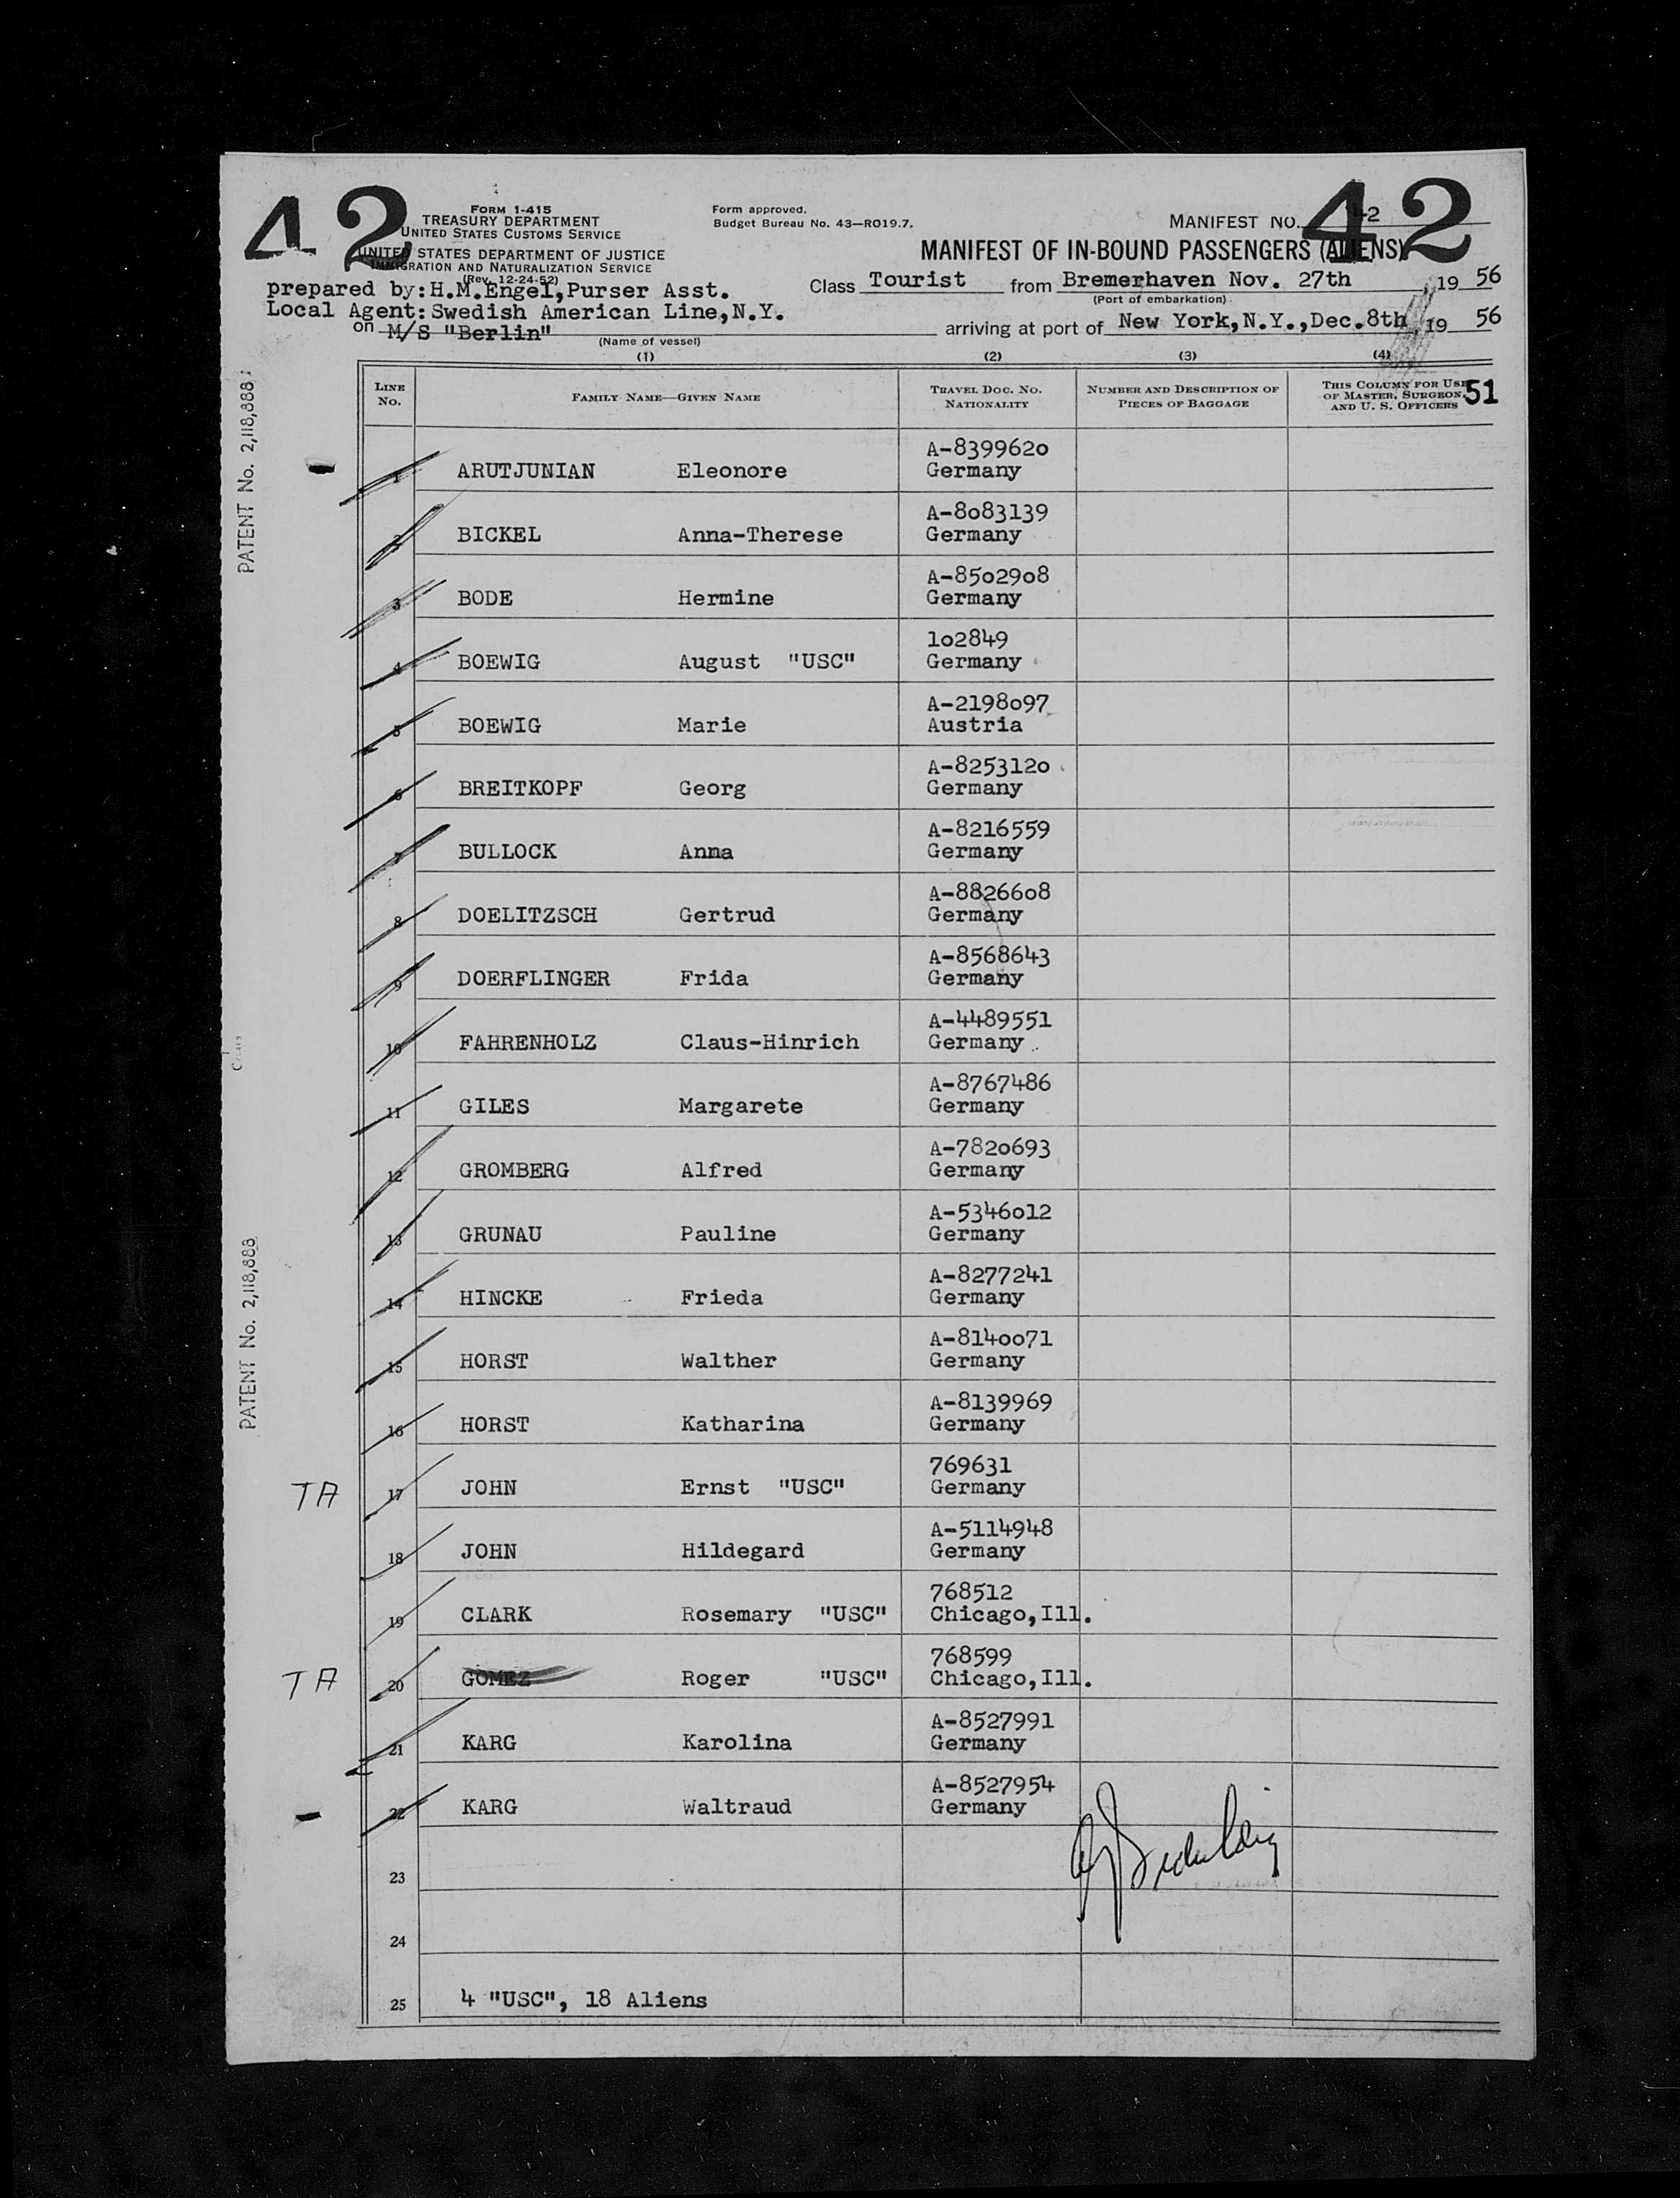 42
42
FORM I-415
TREASURY DEPARTMENT
UNITED STATES CUSTOMS SERVICE
UNITED STATES DEPARTMENT OF JUSTICE
IMMIGRATION AND NATURALIZATION SERVICE
(Rev. 12-24-52)
Form approved.
Budget Bureau No. 43—RO19.7.
MANIFEST NO. 42
MANIFEST OF IN-BOUND PASSENGERS (ALIENS)
prepared by:H.M.Engel,Purser Asst.
Class Tourist from Bremerhaven Nov. 27th, 19 56
(Port of embarkation)
Local Agent:Swedish American Line,N.Y.
on M/S "Berlin" arriving at port of New York,N.Y.,Dec.8th, 19 56
(Name of vessel)
(1) (2) (3) (4)
LINE NO. FAMILY NAME—GIVEN NAME TRAVEL DOC. NO. NATIONALITY NUMBER AND DESCRIPTION OF PIECES OF BAGGAGE THIS COLUMN FOR USE OF MASTER, SURGEON, AND U. S. OFFICERS
51
PATENT No. 2,118,888
A-8399620
1 ARUTJUNIAN Eleonore Germany
A-8083139
2 BICKEL Anna-Therese Germany
A-8502908
3 BODE Hermine Germany
102849
4 BOEWIG August "USC" Germany
A-2198097
5 BOEWIG Marie Austria
A-8253120
6 BREITKOPF Georg Germany
A-8216559
7 BULLOCK Anna Germany
A-8826608
8 DOELITZSCH Gertrud Germany
A-8568643
9 DOERFLINGER Frida Germany
A-4489551
10 FAHRENHOLZ Claus-Hinrich Germany
A-8767486
11 GILES Margarete Germany
A-7820693
12 GROMBERG Alfred Germany
A-5346012
13 GRUNAU Pauline Germany
A-8277241
14 HINCKE Frieda Germany
A-8140071
15 HORST Walther Germany
PATENT No. 2,118,888
A-8139969
16 HORST Katharina Germany
769631
TA 17 JOHN Ernst "USC" Germany
A-5114948
18 JOHN Hildegard Germany
768512
19 CLARK Rosemary "USC" Chicago,Ill.
768599
TA 20 GOMEZ Roger "USC" Chicago,Ill.
A-8527991
21 KARG Karolina Germany
A-8527954
22 KARG Waltraud Germany
23
24
25 4 "USC", 18 Aliens